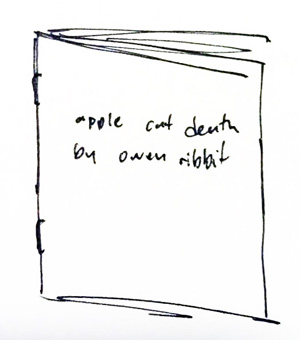 apple cat death
by owen ribbit